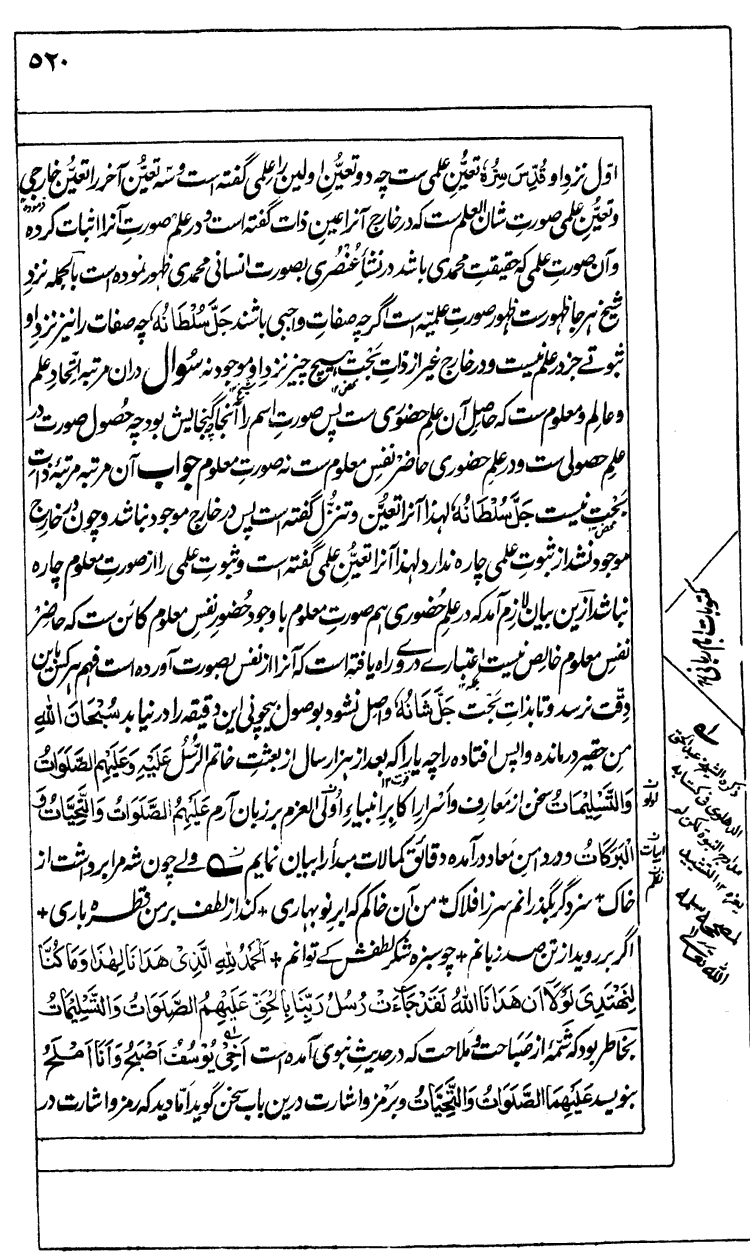 ۵۲۰
اوّل نزد او قُدِّسَ سِرُّهٗ تعیُّنِ علمی ست چہ دو تعیُّنِ اولین را علمی گفتہ است و سہ تعیُّن آخر را تعیُّن خارجی
و تعیُّن علمی صورتِ شان العلم ست کہ در خارج آنرا عین ذات گفتہ است و در علم صورتِ آنرا اثبات کردہ
و آن صورتِ علمی کہ حقیقتِ محمدی باشد در نشأۂ عُنْصُری بصورت انسانی محمدی ظہور نمودہ است بالجملہ نزدِ
شیخ ہر جا ظہورست ظہورِ صورتِ علمیّہ است اگرچہ صفاتِ واجبی باشند جَلَّ سُلْطَانُہٗ چہ صفات را نیز نزد او
ثبوتے جز در علم نیست و در خارج غیر از ذاتِ بَحْت ہیچ چیز نزد او موجود نہ سُوال دران مرتبہ اتّحادِ علم
و عالم و معلوم ست کہ حاصلِ آن علم حضوری ست پس صورت اسم را آنجا چہ گنجایش بود چہ حُصول صورت در
علم حصولی ست و در علم حضوری حاضر نفسِ معلوم ست نہ صورتِ معلوم جواب آن مرتبہ مرتبۂ ذاتِ
بَحْت نیست جَلَّ سُلْطَانُہٗ لہٰذا آنرا تعیُّن و تنزُّل گفتہ است پس در خارج موجود نباشد و چون در خارج
موجود نشد از ثبوتِ علمی چارہ ندارد لہٰذا آنرا تعیُّنِ علمی گفتہ است و ثبوتِ علمی را از صورتِ معلوم چارہ
نباشد ازین بیان لازم آمد کہ در علم حُضوری ہم صورتِ معلوم با وجود حُضورِ نفسِ معلوم کائن ست کہ حاضر
نفسِ معلوم خالص نیست اعتبارے در وے راہ یافتہ است کہ آنرا از نفس بصورت آوردہ است فہم ہر کس باین
دقّت نرسد و تا بذاتِ بَحْت جَلَّ شَانُہٗ واصل نشود بوصول بیچونی این دقیقہ را در نیابد سُبْحَانَ اللّٰہِ
من حقیر درماندہ و واپس افتادہ را چہ یارا کہ بعد از ہزار سال از بعثتِ خاتم الرُّسل عَلَیْہِ وَعَلَیْہِمُ الصَّلَوَاتُ
وَالتَّسْلِیْمَاتُ سخن از معارف و اَسرارِ اکابر انبیاءِ اُولی العزم بر زبان آرم عَلَیْہِمُ الصَّلَوَاتُ وَالتَّحِیَّاتُ وَ
الْبَرَکَاتُ و در و امنِ معاد درآمدہ دقائقِ کمالات مبدأ را بیان نمایم ولے چون شہ مرا برداشت از
خاک + سزد گر بگذرانم سر ز افلاک + من آن خاکم کہ ابرِ نوبہاری + کند از لطف بر من قطرہ باری +
اگر بر روید از تن صد زبانم + چو سبزہ شکرِ لطفش کے توانم + اَلْحَمْدُ لِلّٰہِ الَّذِیْ ھَدَانَا لِھٰذَا وَمَا کُنَّا
لِنَھْتَدِیَ لَوْلَا اَنْ ھَدَانَا اللّٰہُ لَقَدْ جَاءَتْ رُسُلُ رَبِّنَا بِالْحَقِّ عَلَیْہِمُ الصَّلَوَاتُ وَالتَّسْلِیْمَاتُ
بخاطر بود کہ شمّۂ از صَباحت و مَلاحت کہ در حدیثِ نبوی آمدہ است اَخِیْ یُوْسُفُ اَصْبَحُ وَاَنَا اَمْلَحُ
بنویسد عَلَیْہِمَا الصَّلَوَاتُ وَالتَّحِیَّاتُ و برمز و اشارت درین باب سخن گوید اما دید کہ رمز و اشارت در
مکتوبات امام ربانی
ابیات